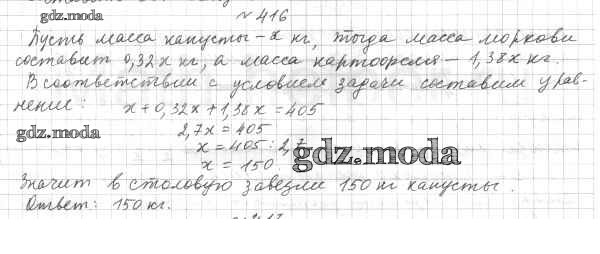 № 416
gdz.moda
Пусть масса капусты - x кг, тогда масса моркови
составит 0,32x кг, а масса картофеля - 1,38x кг.
В соответствии с условием задачи составим урав-
нение: x + 0,32x + 1,38x = 405
gdz.moda 2,7x = 405
x = 405 : 2,7
gdz.moda
x = 150
Значит в столовую завезли 150 кг капусты.
Ответ: 150 кг.